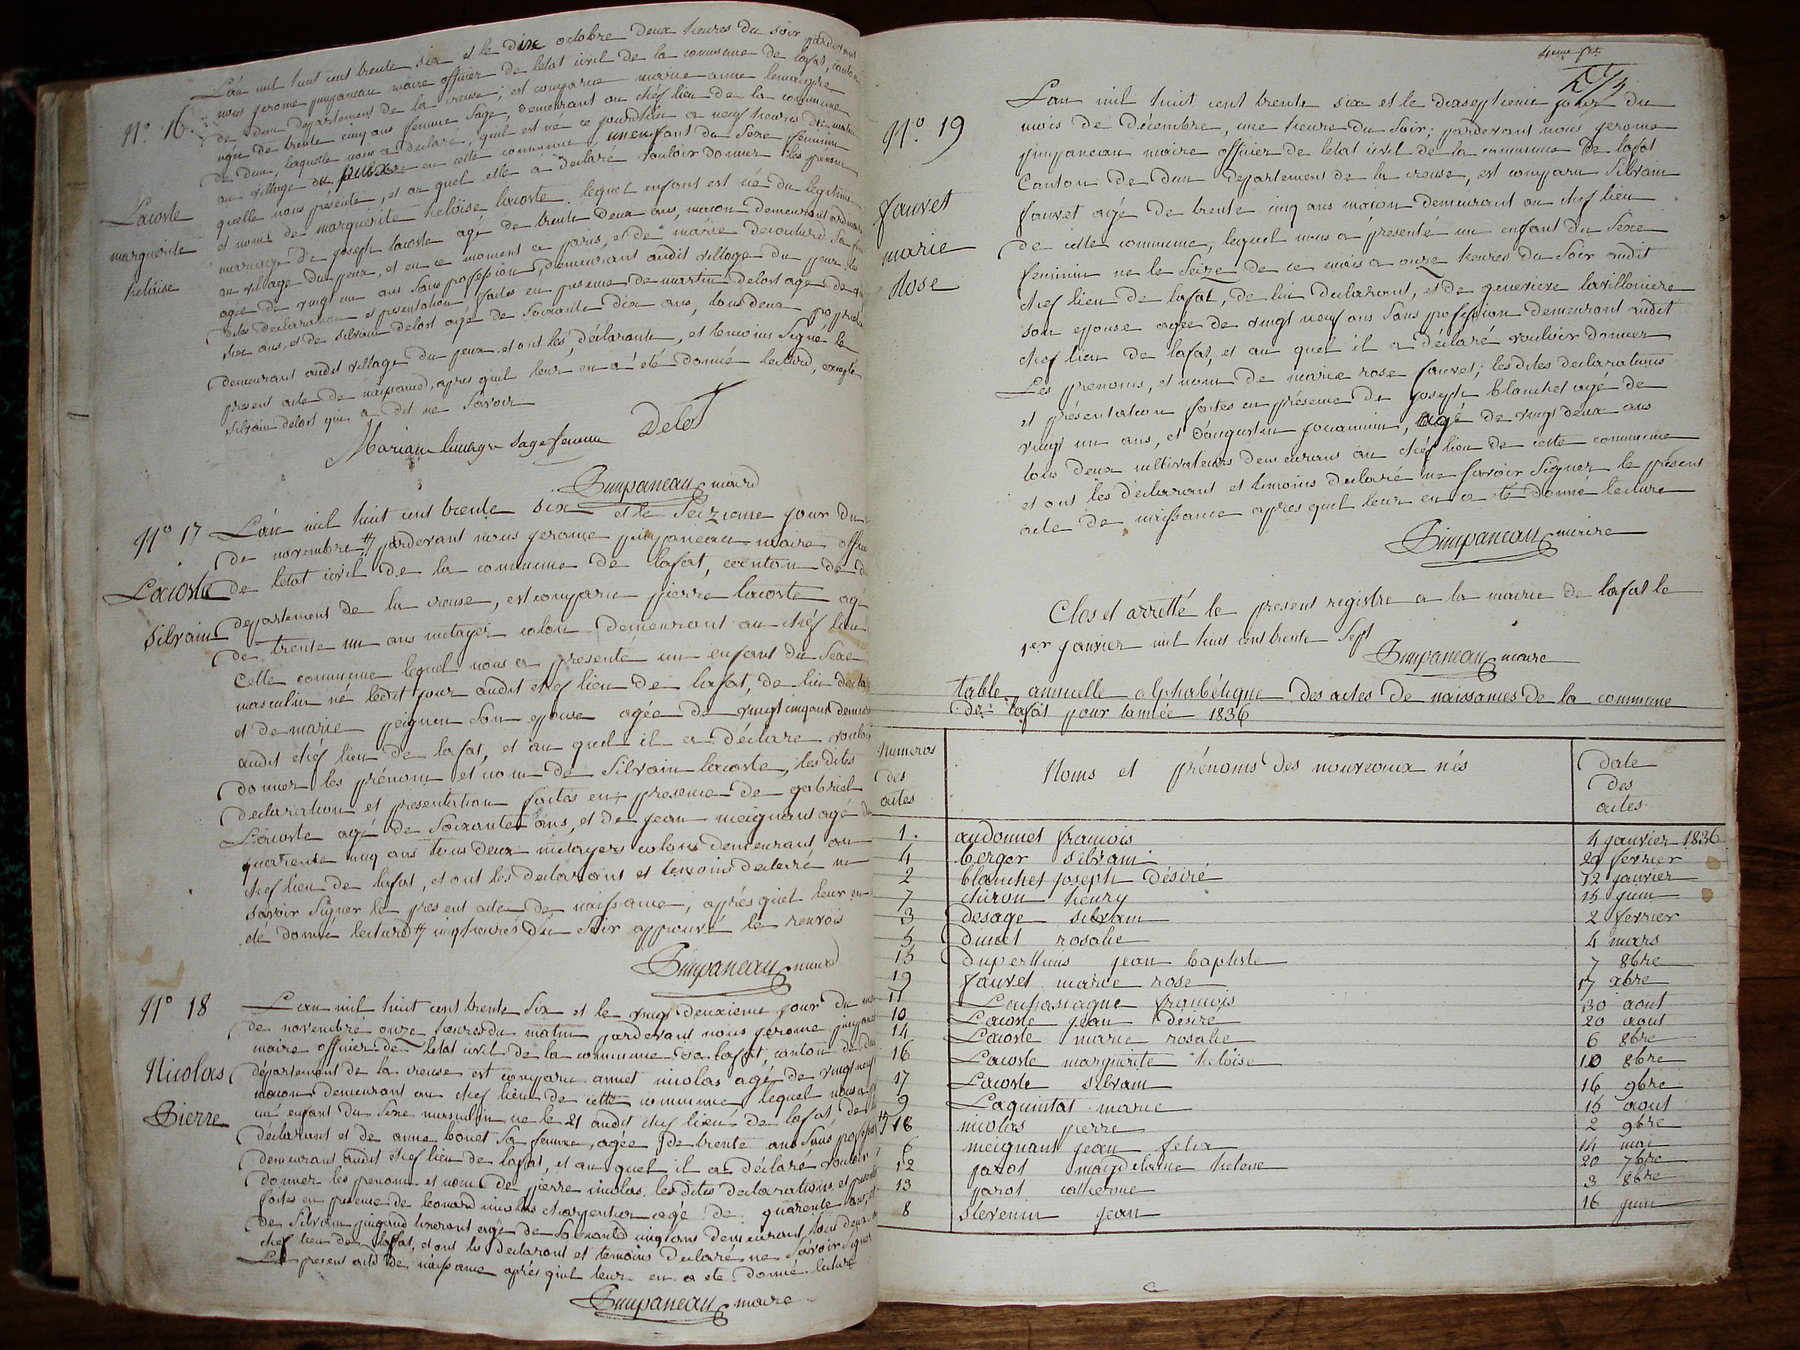 N.o 16
Lacoste
marguerite
heloise
L'an mil huit cent trente six et le dix octobre deux heures du soir pardevant
nous jerome pimpaneau maire officier de letat civil de la commune de lafat, canton
de dun departement de la creuse; est comparue marie anne lemaigre
agee de trente cinq ans femme sage, demeurant au chef lieu de la commune
de dun, laquelle nous a declaré, quil est né ce jourdhui a neuf heures du matin
au village du peux en cette commune, un enfant du sexe féminin
quelle nous présente, et au quel elle a declaré vouloir donner les prenoms
et noms de marguerite heloise lacoste. lequel enfant est né du legitime
mariage de joseph lacoste agé de trente deux ans, macon demeurant
au village du peux, et en ce moment a paris, et de marie decoulurd sa
agée de vingt un ans sans profession, demeurant audit village du peux les
dites declaration et presentation faites en presence de martin delost agé de
six ans, et de silvain delost agé de soixante dix ans, tous deux propriet
demeurant audit village du peux et ont les déclarants, et temoins signé le
present acte de naissance, apres quil leur en a été donné lecture, excepté
silvain delost qui a dit ne savoir
Mariane lemaigre sage femme Delost
Pimpaneau maire
N.o 17
Lacoste
Silvain
L'an mil huit cent trente six et le seizieme jour du
de novembre # pardevant nous jerome pimpaneau maire offic
de letat civil de la commune de lafat, canton de du
departement de la creuse, est comparu pierre lacoste agé
de trente un ans metayer colon demeurant au chef lieu
cette commune lequel nous a presenté un enfant du sexe
masculin né ledit jour audit chef lieu de lafat, de lui decla
et de marie peignin son epouse agée de vingt cinq ans demeu
audit chef lieu de lafat, et au quel il a declaré vouloir
donner les prénom et nom de silvain lacoste, les dites
declaration et presentation faites en presence de gabriel
Lacoste agé de soixante ans, et de jean meignant agé de
quarente cinq ans tous deux metayers colons demeurant au
chef lieu de lafat, et ont les declarants et temoins declaré ne
savoir signer le present acte de naissance, aprés quil leur en
été donné lecture # cinq heures du soir approuvé le renvois
Pimpaneau maire
N.o 18
Nicolas
Pierre
L'an mil huit cent trente six et le vingt deuxieme jour du mois
de novembre onze heures du matin pardevant nous jerome pimpane
maire officier de letat civil de la commune de lafat, canton de du
departement de la creuse est comparu annet nicolas agé de vingt neuf
macon demeurant au chef lieu de cette commune lequel nous a
un enfant du sexe masculin né le 21 audit chef lieu de lafat de lui
déclarant et de anne bouet sa femme, agée de trente ans sans profession
demeurant audit chef lieu de lafat, et au quel il a déclaré vouloir
donner les prenoms et noms de pierre nicolas. les dites declarations et present
faites en presence de leonard nicolas charpentier agé de quarente ans, et
de silvain pingaud tisserant agé de soixante cinq ans demeurant tous deux
chef lieu de lafat, et ont les declarant et temoins declaré ne savoir signer
Le present acte de naissance aprés quil leur en a ete donné lecture
Pimpaneau maire
N.o 19
fauvet
marie
Rose
L'an mil huit cent trente six et le dixseptieme jour du
mois de décembre, une heure du soir; pardevant nous jerome
pimpaneau maire officier de letat civil de la commune de lafat
Canton de dun departement de la creuse, est comparu silvain
fauvet agé de trente cinq ans macon demeurant au chef lieu
de cette commune, lequel nous a présenté un enfant du sexe
feminin né le seize de ce mois a onze heures du soir audit
chef lieu de lafat, de lui declarant, et de genevieve lavilloniere
son epouse agée de vingt neuf ans sans profession demeurant audit
chef lieu de lafat, et au quel il a déclaré vouloir donner
Les prenoms, et nom de marie rose fauvet; les dites declarations
et présentation faites en présence de joseph blanchet agé de
vingt un ans, et d'augustin jouannin, agé de vingt deux ans
tous deux cultivateurs demeurans au chef lieu de cette commune
et ont les déclarant et temoins declaré ne savoir signer le présent
acte de naissance apres quil leur en a été donné lecture
Pimpaneau maire
Clos et arretté le present registre a la mairie de lafat le
1er janvier mil huit cent trente sept
Pimpaneau maire
table annuelle alphabétique des actes de naissances de la commune
de lafat pour lannée 1836
Numeros des actes | Noms et prénoms des nouveaux nés | Date des actes
1. audonnet francois 4 janvier 1836
4 berger silvain 29 fevrier
2 blanchet joseph désiré 12 janvier
7 chiron henry 15 juin
3 desage silvain 2 fevrier
5 dimet rosalie 4 mars
15 duperthuis jean baptiste 7 8bre
19 fauvet marie rose 17 xbre
11 Lachassagne francois 30 aout
10 Lacoste jean desiré 20 aout
14 Lacoste marie rosalie 6 8bre
16 Lacoste marguerite heloise 10 8bre
17 Lacoste silvain 16 9bre
9 Laquintat marie 15 aout
18 nicolas pierre 2 9bre
6 meignant jean felix 14 mai
12 parot magdelaine helene 20 7bre
13 parot catherine 3 8bre
8 stevenin jean 16 juin